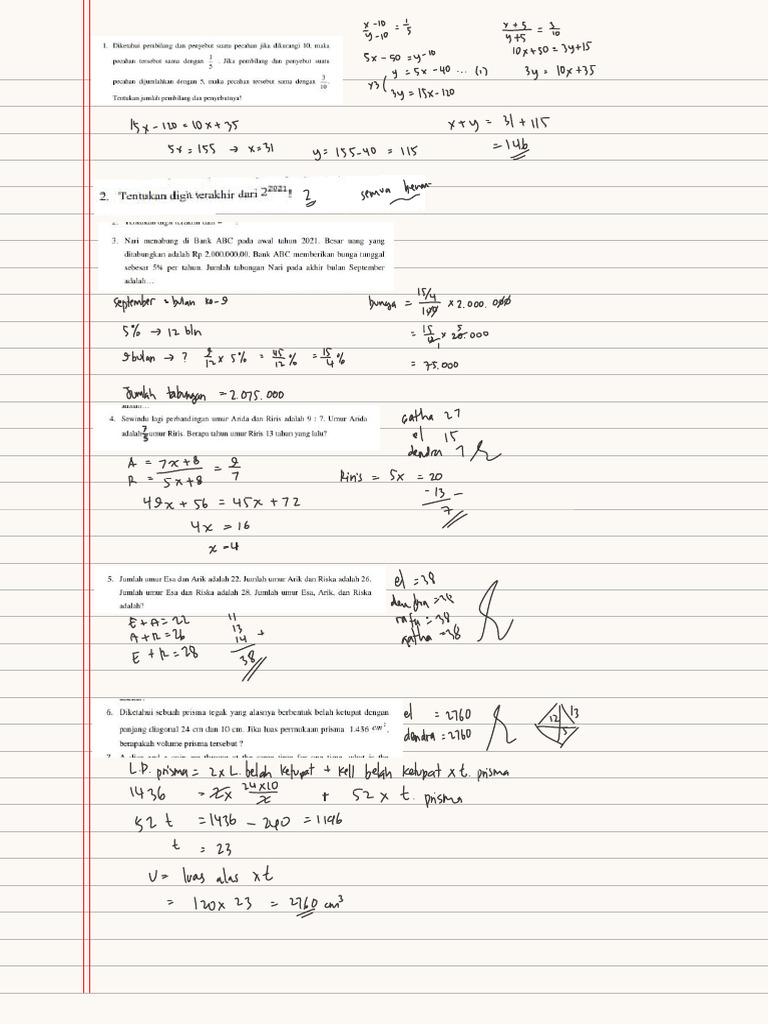 1. Diketahui pembilang dan penyebut suatu pecahan jika dikurangi 10, maka
pecahan tersebut sama dengan 1/5 . Jika pembilang dan penyebut suatu
pecahan dijumlahkan dengan 5, maka pecahan tersebut sama dengan 3/10.
Tentukan jumlah pembilang dan penyebutnya!
x-10/y-10 = 1/5
5x - 50 = y-10
y = 5x - 40 ... (1)
x3
3y = 15x-120
x+5/y+5 = 3/10
10x+50 = 3y+15
3y = 10x+35
15x-120 = 10x+35
5x = 155 → x=31
y = 155-40 = 115
x+y = 31 + 115
= 146
2. Tentukan digit terakhir dari 2^2021!
2
semua benar
3. Nari menabung di Bank ABC pada awal tahun 2021. Besar uang yang
ditabungkan adalah Rp 2.000.000,00. Bank ABC memberikan bunga tunggal
sebesar 5% per tahun. Jumlah tabungan Nari pada akhir bulan September
adalah…
September = bulan ke-9
5% → 12 bln
9 bulan → ? 9/12 x 5% = 45/12 % = 15/4 %
bunga = 15/4/100 x 2.000.000
= 15/4 x 20.000
= 75.000
Jumlah tabungan = 2.075.000
4. Sewindu lagi perbandingan umur Arida dan Riris adalah 9 : 7. Umur Arida
adalah 7/5 umur Riris. Berapa tahun umur Riris 13 tahun yang lalu?
gatha 27
el 15
dendra 7
A = 7x+8 = 9
R = 5x+8 = 7
49x + 56 = 45x + 72
4x = 16
x = 4
Riris = 5x = 20
-13
7
5. Jumlah umur Esa dan Arik adalah 22. Jumlah umur Arik dan Riska adalah 26.
Jumlah umur Esa dan Riska adalah 28. Jumlah umur Esa, Arik, dan Riska
adalah?
el = 38
dendra = 38
rafy = 38
gatha = 38
E + A = 22
A + R = 26
E + R = 28
11
13
14 +
38
6. Diketahui sebuah prisma tegak yang alasnya berbentuk belah ketupat dengan
panjang diagonal 24 cm dan 10 cm. Jika luas permukaan prisma 1.436 cm²,
berapakah volume prisma tersebut ?
el = 2760
dendra = 2760
12 13
5
L.P. prisma = 2 x L. belah ketupat + kell belah ketupat x t. prisma
1436 = 2 x 24x10/2 + 52 x t. prisma
52 t = 1436 - 240 = 1196
t = 23
V = luas alas x t
= 120 x 23 = 2760 cm³